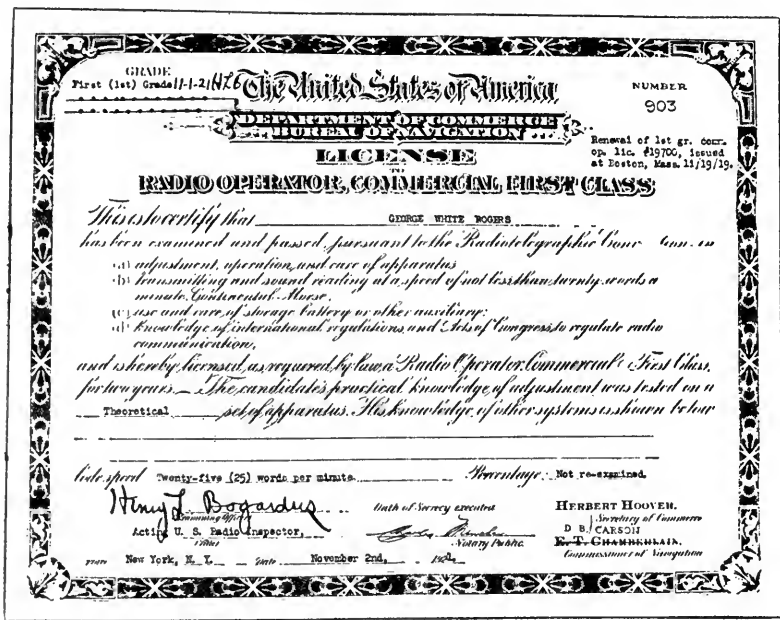 GRADE
First (1st) Grade 11-1-21 HLB
The United States of America
NUMBER
903
DEPARTMENT OF COMMERCE
BUREAU OF NAVIGATION
Renewal of 1st gr. com.
op. lic. #19700, issued
at Boston, Mass. 11/19/19.
LICENSE
TO
RADIO OPERATOR, COMMERCIAL FIRST CLASS
This is to certify that GEORGE WHITE ROGERS
has been examined and passed, pursuant to the Radiotelegraphic
(a) adjustment, operation, and care of apparatus
(b) transmitting and sound reading at a speed of not less than twenty words a
minute, Continental Morse,
(c) use and care of storage battery or other auxiliary;
(d) knowledge of international regulations, and Acts of Congress to regulate radio
communication,
and is hereby licensed, as required by law, a Radio Operator, Commercial First Class,
for two years. The candidate's practical knowledge of adjustment was tested on a
Theoretical set of apparatus. His knowledge of other systems is shown below
Code speed Twenty-five (25) words per minute. Percentage: Not re-examined
Henry L. Bogardus
Examining Officer
Oath of Secrecy executed
HERBERT HOOVER,
Secretary of Commerce
Acting U. S. Radio Inspector,
Notary Public.
D B. CARSON
E. T. CHAMBERLAIN,
Commissioner of Navigation
Place New York, N. Y. Date November 2nd,